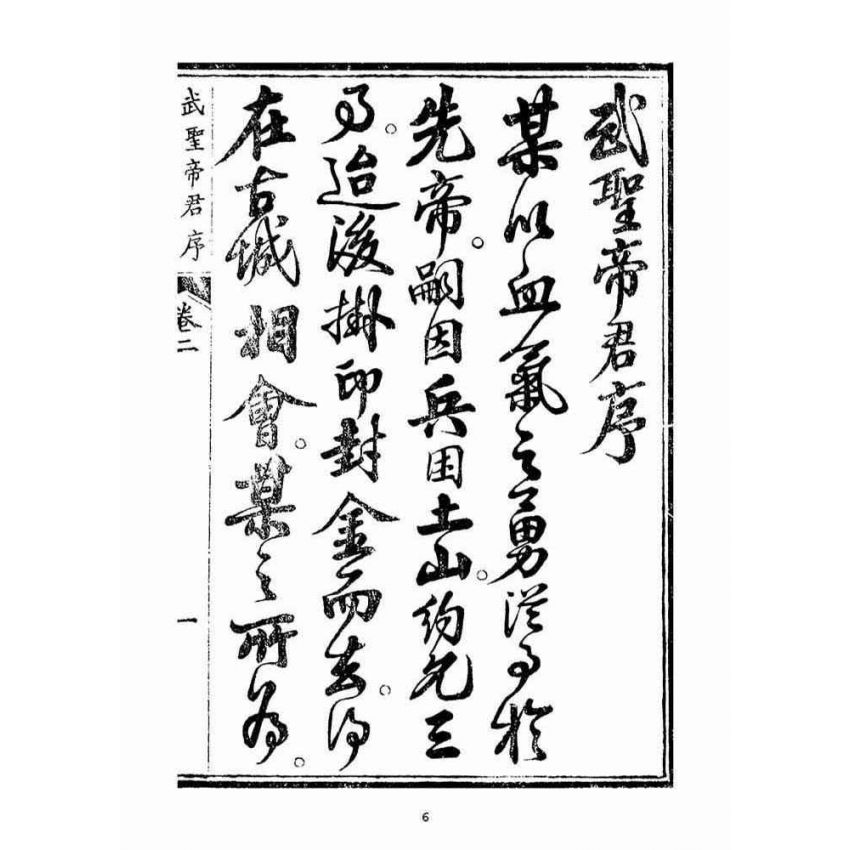 武聖帝君序
某以血氣之勇從事於
先帝。嗣因兵困土山。約允三
事。迨後掛印封金而去。得
在古城相會。某之所為。
武聖帝君序 卷二 一
6